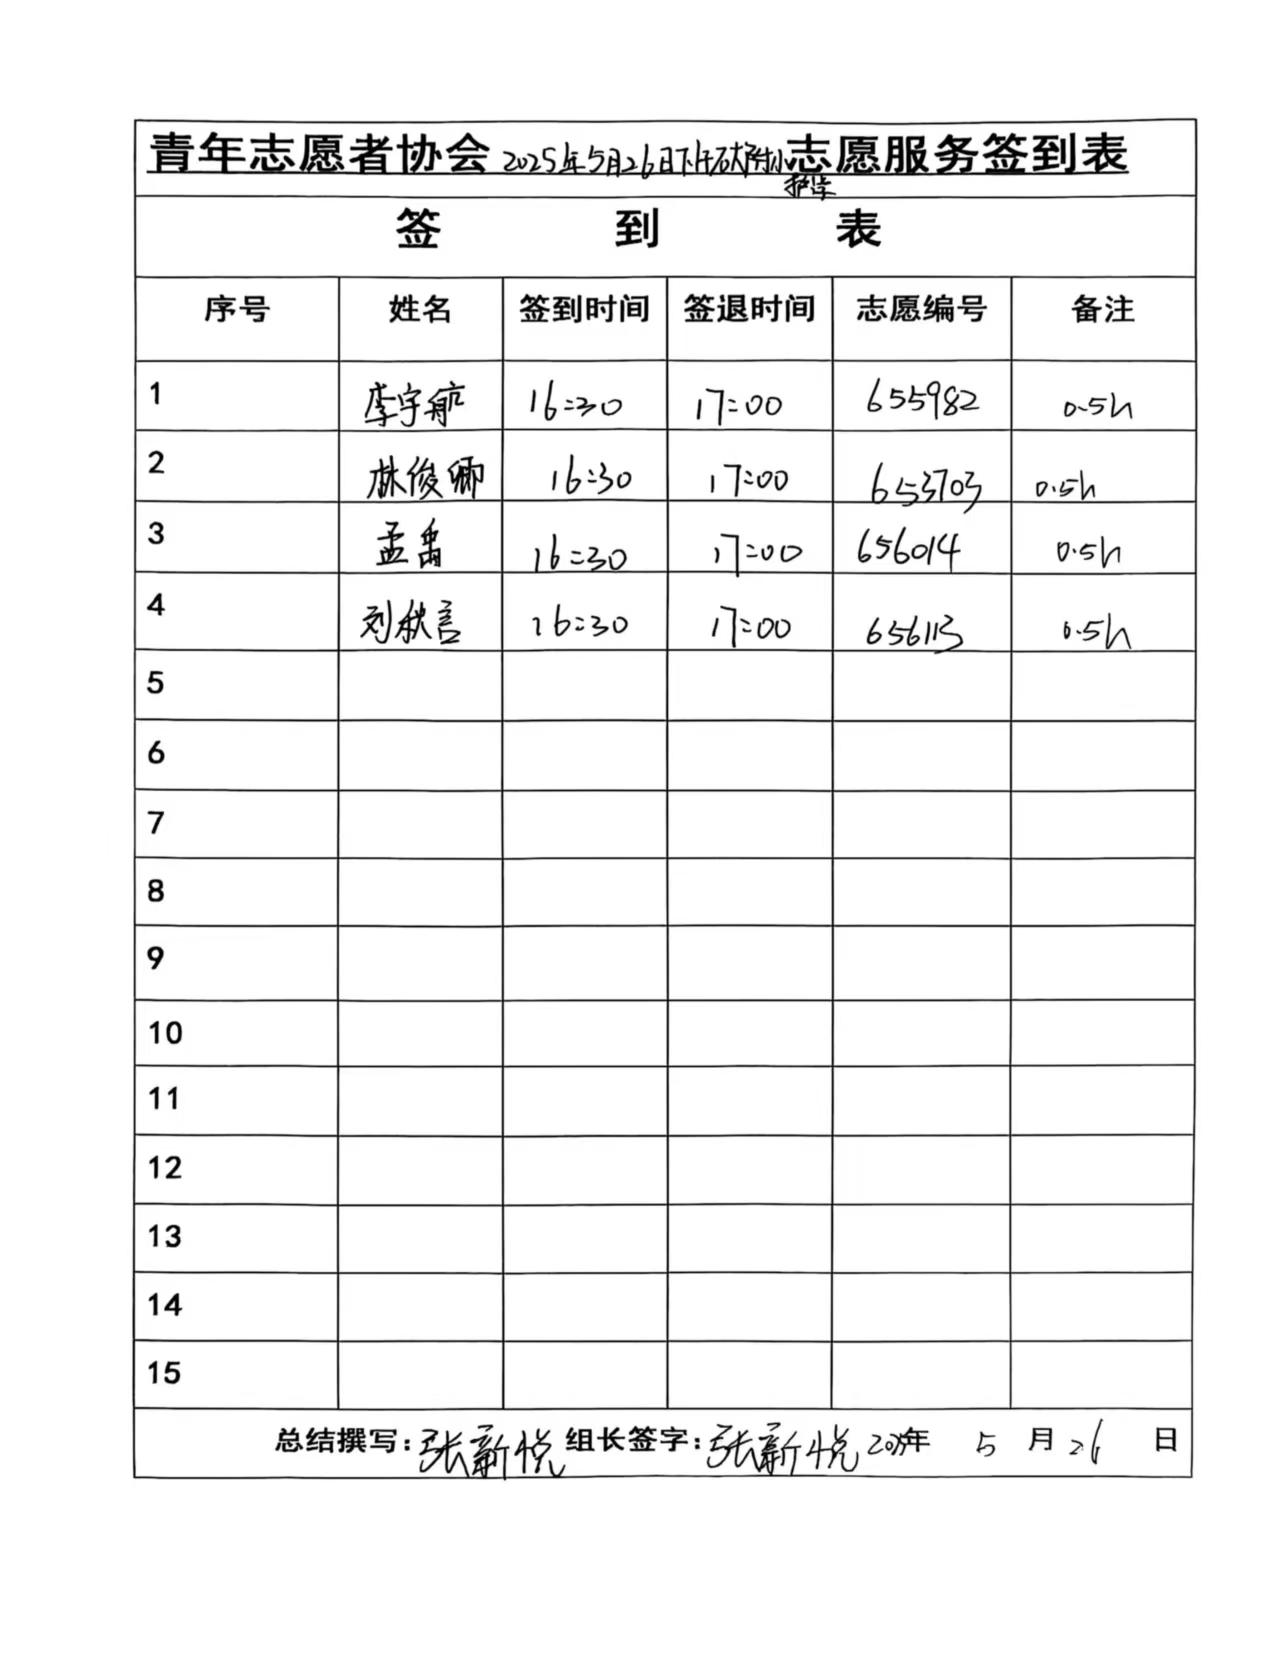 青年志愿者协会2025年5月26日下午石大附小志愿服务签到表
护学
签 到 表
序号 姓名 签到时间 签退时间 志愿编号 备注
1 李宇航 16:30 17:00 655982 0.5h
2 林俊卿 16:30 17:00 653703 0.5h
3 孟禹 16:30 17:00 656014 0.5h
4 刘秋言 16:30 17:00 656113 0.5h
5
6
7
8
9
10
11
12
13
14
15
总结撰写:张新悦 组长签字:张新悦 2025年 5 月 26 日